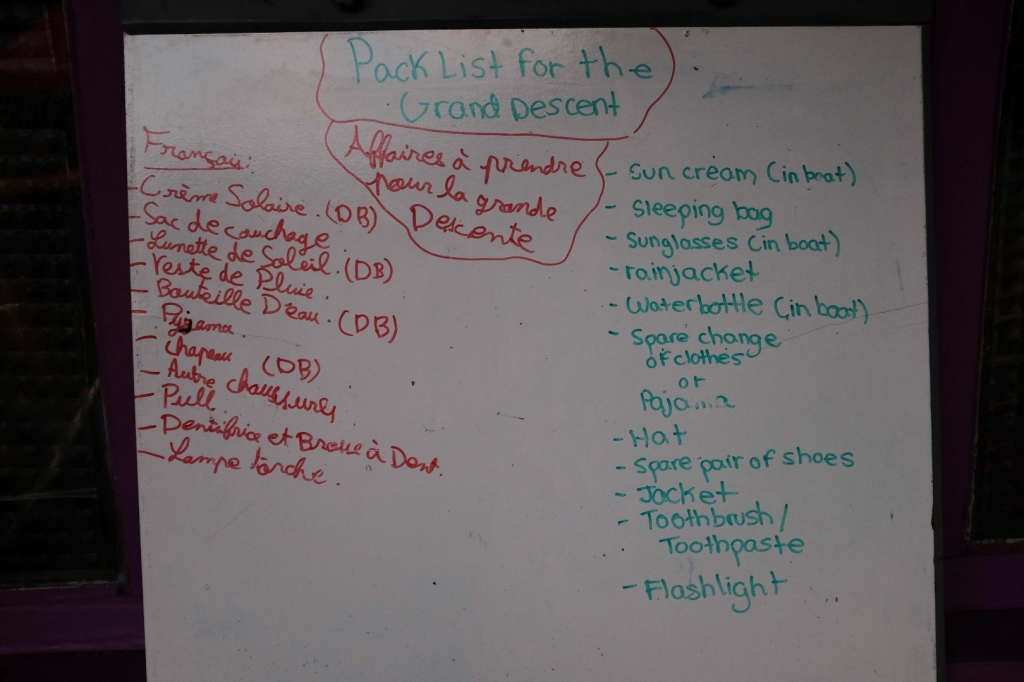 Pack List for the
Grand Descent
Affaires à prendre
pour la grande
Descente
Français:
- Crème Solaire. (DB)
- Sac de couchage
- Lunette de Soleil. (DB)
- Veste de Pluie.
- Bouteille D'eau. (DB)
- Pyjama.
- Chapeau (DB)
- Autre chaussures
- Pull
- Dentifrice et Brosse à Dent.
- Lampe torche.
- Sun cream (in boat)
- Sleeping bag
- Sunglasses (in boat)
- rainjacket
- Waterbottle (in boat)
- Spare change
of clothes
or
Pajama
- Hat
- Spare pair of shoes
- Jacket
- Toothbrush/
Toothpaste
- Flashlight